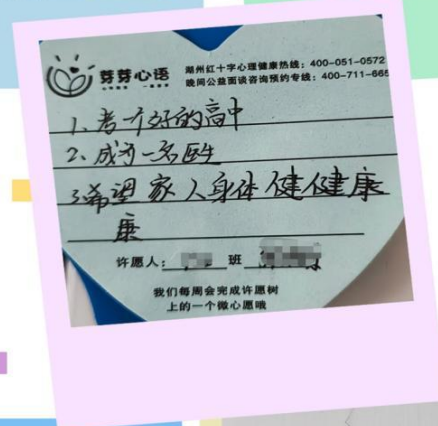 芽芽心语
湖州红十字心理健康热线：400-051-0572
晚间公益面谈咨询预约专线：400-711-665
1、考一个好的高中
2、成为一名医生
3希望家人身体健健康
康
许愿人： 班
我们每周会完成许愿树
上的一个微心愿哦